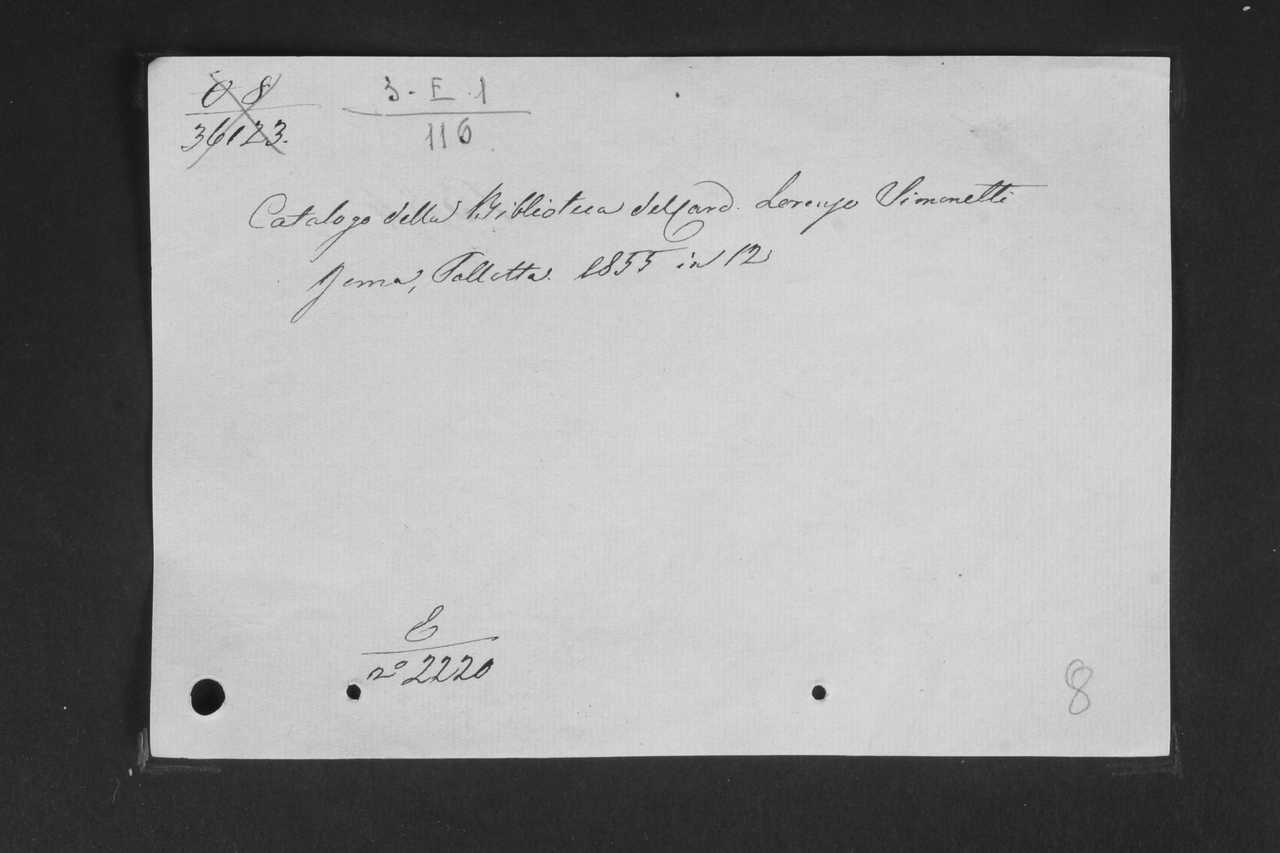 O 8
36123.
3 - E. 1
116
Catalogo della Biblioteca del Card. Lorenzo Simonetti
Roma, Pallotta. 1855 in 12
E
nº 2220
8